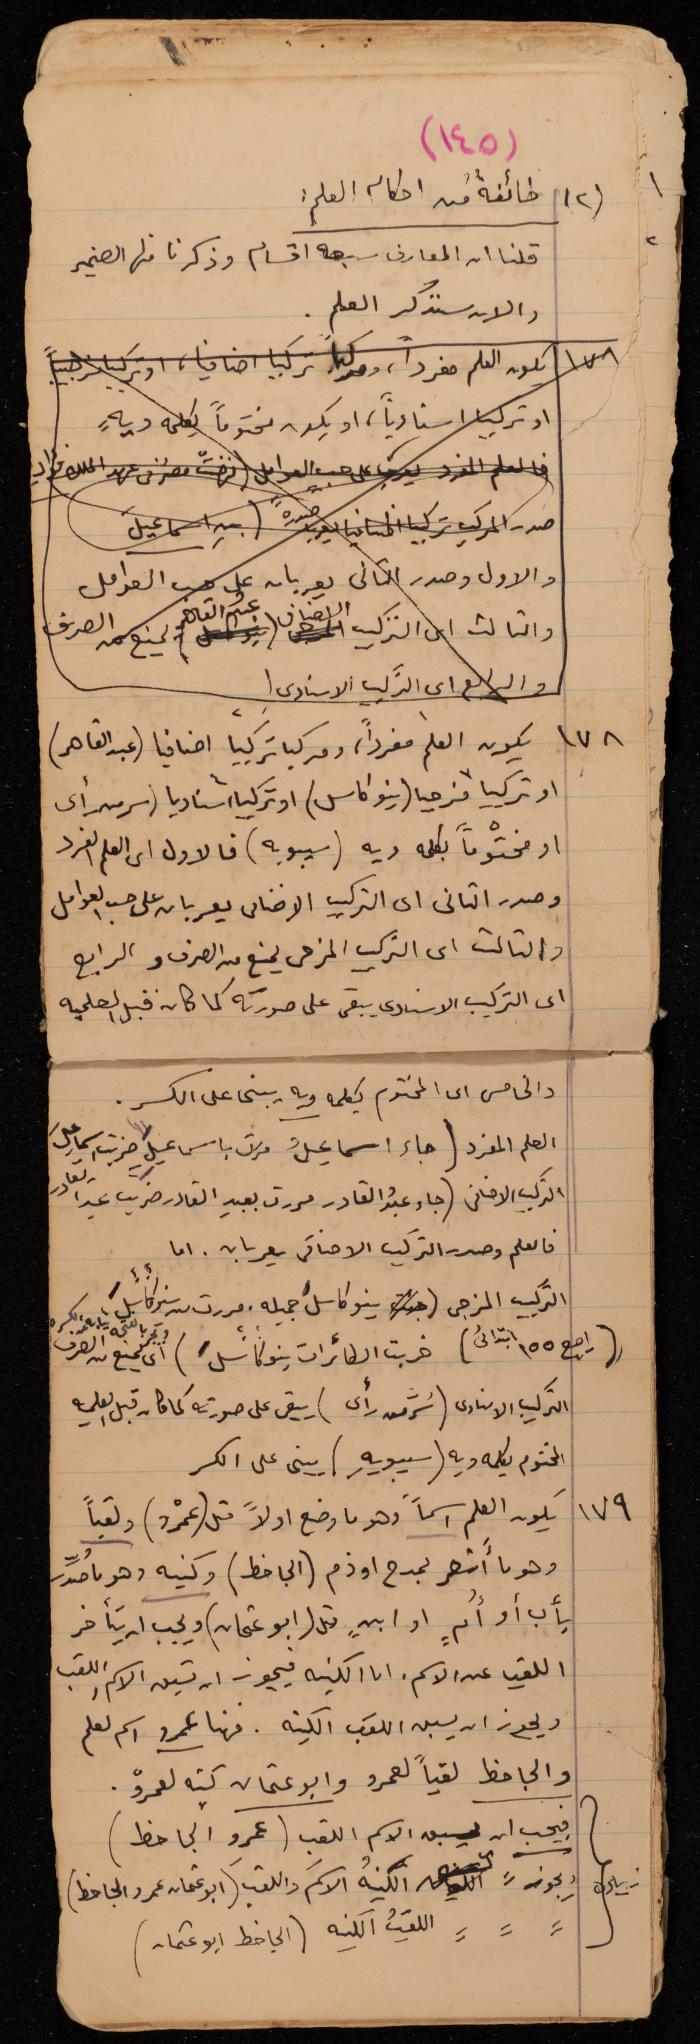 (١٤٥)
١ (٢) طائفة من احكام العلم:
٢ قلنا ان المعارف سبعه اقسام وذكرنا منها الضمير
والان سنذكر العلم .
١٧٨ يكون العلم مفرداً، ومركباً تركيبا اضافيا، او تركيبا مزجيياً
او تركيبا اسنادياً، او يكون مختوماً بكلمه ويهٍ
فالعلم المفرد يعرب على حسب العوامل (نهضت مصر في عهد الملك فؤاد
صدر المركب تركيبا اضافيا يعرب صدرهً (بنِ اسماعيلَ
والاول وصدر الثانى يعربان على حسب العوامل
والثالث اى التركيب الاضافى (عبد القاهر) يمنع من الصرف
والرابع اى التركيب الاسنادى (
١٧٨ يكون العلم مفرداً، ومركبا تركيبياً اضافيا (عبد القاهر)
او تركيبيا مزجيا (ينو كاسل) او تركيبيا اسناديا (سر من رأى
او مختوْماً بكلمه ويه (سيبويه) فالاول اى العلم المفرد
وصدر الثانى اى التركيب الاضافى يعربان على حسب العوامل
والثالث اى التركيب المزجى يمنع من الصرف و الرابع
اى التركيب الاسنادى يبقى على صورته كما كان قبل العلميه
والخامس اى المختوم بكلمه ويه يبنى على الكسر .
العلم المفرد (جاء اسماعيلُ مررت باسماعيلَ ضربت اسماعيلَ
التركيب الاضافى (جاء عبدُ القادر مررت بعبدِ القادر ضربت عبدَ القادر
فالعلم وصدر التركيب الاضافى يعربان . اما
التركيب المزجى ( ينو كاسلُ جميله . مررت من ينو كاسلَ
(راجع ١٥٥ ابتدائى) ضربت الطائرات ينو كاسلَ ) اى يمنع من الصرف
التركيب الاسنادى (سُرَّ من رأى) يبقى على صورته كما كان قبل العلميه
المختوم بكلمه ويه (سيبويهِ) يبنى على الكسر
١٧٩ يكون العلم اسماً وهو ما وضع اولاً مثل (عمْرو) ولقباً
وهو ما أُشعر بمدح او ذم (الجاحظ) وكنيه وهو ما صُدِّرَ
بأب أو أُمٍ او ابنٍ مثل (ابو عثمان) ويجب ان يتأخر
اللقب عن الاسم . اما الكنيه فيجوز ان تسبق الاسم واللقب
ويجوز ان يسبق اللقب الكنيه . فهنا عمرو اسم لعلم
والجاحظ لقباً لعمرو وابو عثمان كنيه لعمروٍ .
فيجب ان يسبق الاسم اللقب (عمرو الجاحظ)
زيادة ويجوز〃 تسبق الكنيهُ الاسمَ واللقبَ (ابو عثمان عمرو الجاحظ)
〃 〃 〃 اللقبُ الكنيه (الجاحظ ابو عثمان)